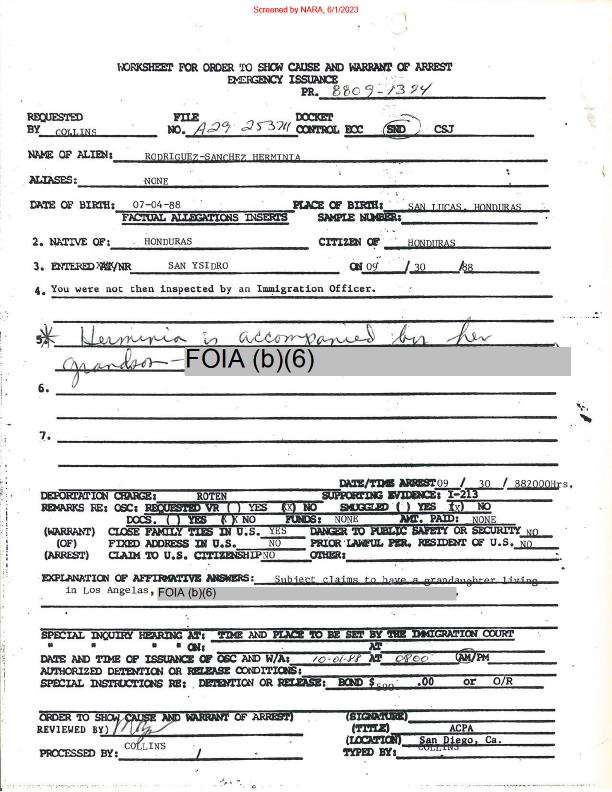 Screened by NARA, 6/1/2023
WORKSHEET FOR ORDER TO SHOW CAUSE AND WARRANT OF ARREST
EMERGENCY ISSUANCE
PR. 8809-1394
REQUESTED FILE DOCKET
BY COLLINS NO. A29 253711 CONTROL ECC SND CSJ
NAME OF ALIEN: RODRIGUEZ-SANCHEZ HERMINIA
ALIASES: NONE
DATE OF BIRTH: 07-04-88 PLACE OF BIRTH: SAN LUCAS, HONDURAS
FACTUAL ALLEGATIONS INSERTS SAMPLE NUMBER:
2. NATIVE OF: HONDURAS CITIZEN OF HONDURAS
3. ENTERED AT/NR SAN YSIDRO ON 09 / 30 /88
4. You were not then inspected by an Immigration Officer.
5. * Herminia is accompanied by her
grandson - FOIA (b)(6)
6.
7.
DATE/TIME ARREST 09 / 30 / 88 2000Hrs.
DEPORTATION CHARGE: ROTEN SUPPORTING EVIDENCE: I-213
REMARKS RE: OSC: REQUESTED VR ( ) YES (X) NO SMUGGLED ( ) YES (x) NO
DOCS. ( ) YES (X) NO FUNDS: NONE AMT. PAID: NONE
(WARRANT) CLOSE FAMILY TIES IN U.S. YES DANGER TO PUBLIC SAFETY OR SECURITY NO
(OF) FIXED ADDRESS IN U.S. NO PRIOR LAWFUL PER. RESIDENT OF U.S. NO
(ARREST) CLAIM TO U.S. CITIZENSHIP NO OTHER:
EXPLANATION OF AFFIRMATIVE ANSWERS: Subject claims to have a grandaughter living
in Los Angelas, FOIA (b)(6)
SPECIAL INQUIRY HEARING AT: TIME AND PLACE TO BE SET BY THE IMMIGRATION COURT
" " " " ON: AT
DATE AND TIME OF ISSUANCE OF OSC AND W/A: 10-01-88 AT 0800 AM/PM
AUTHORIZED DETENTION OR RELEASE CONDITIONS:
SPECIAL INSTRUCTIONS RE: DETENTION OR RELEASE: BOND $ 500 .00 or O/R
ORDER TO SHOW CAUSE AND WARRANT OF ARREST) (SIGNATURE)
REVIEWED BY) (TITLE) ACPA
(LOCATION) San Diego, Ca.
PROCESSED BY: COLLINS / TYPED BY: COLLINS